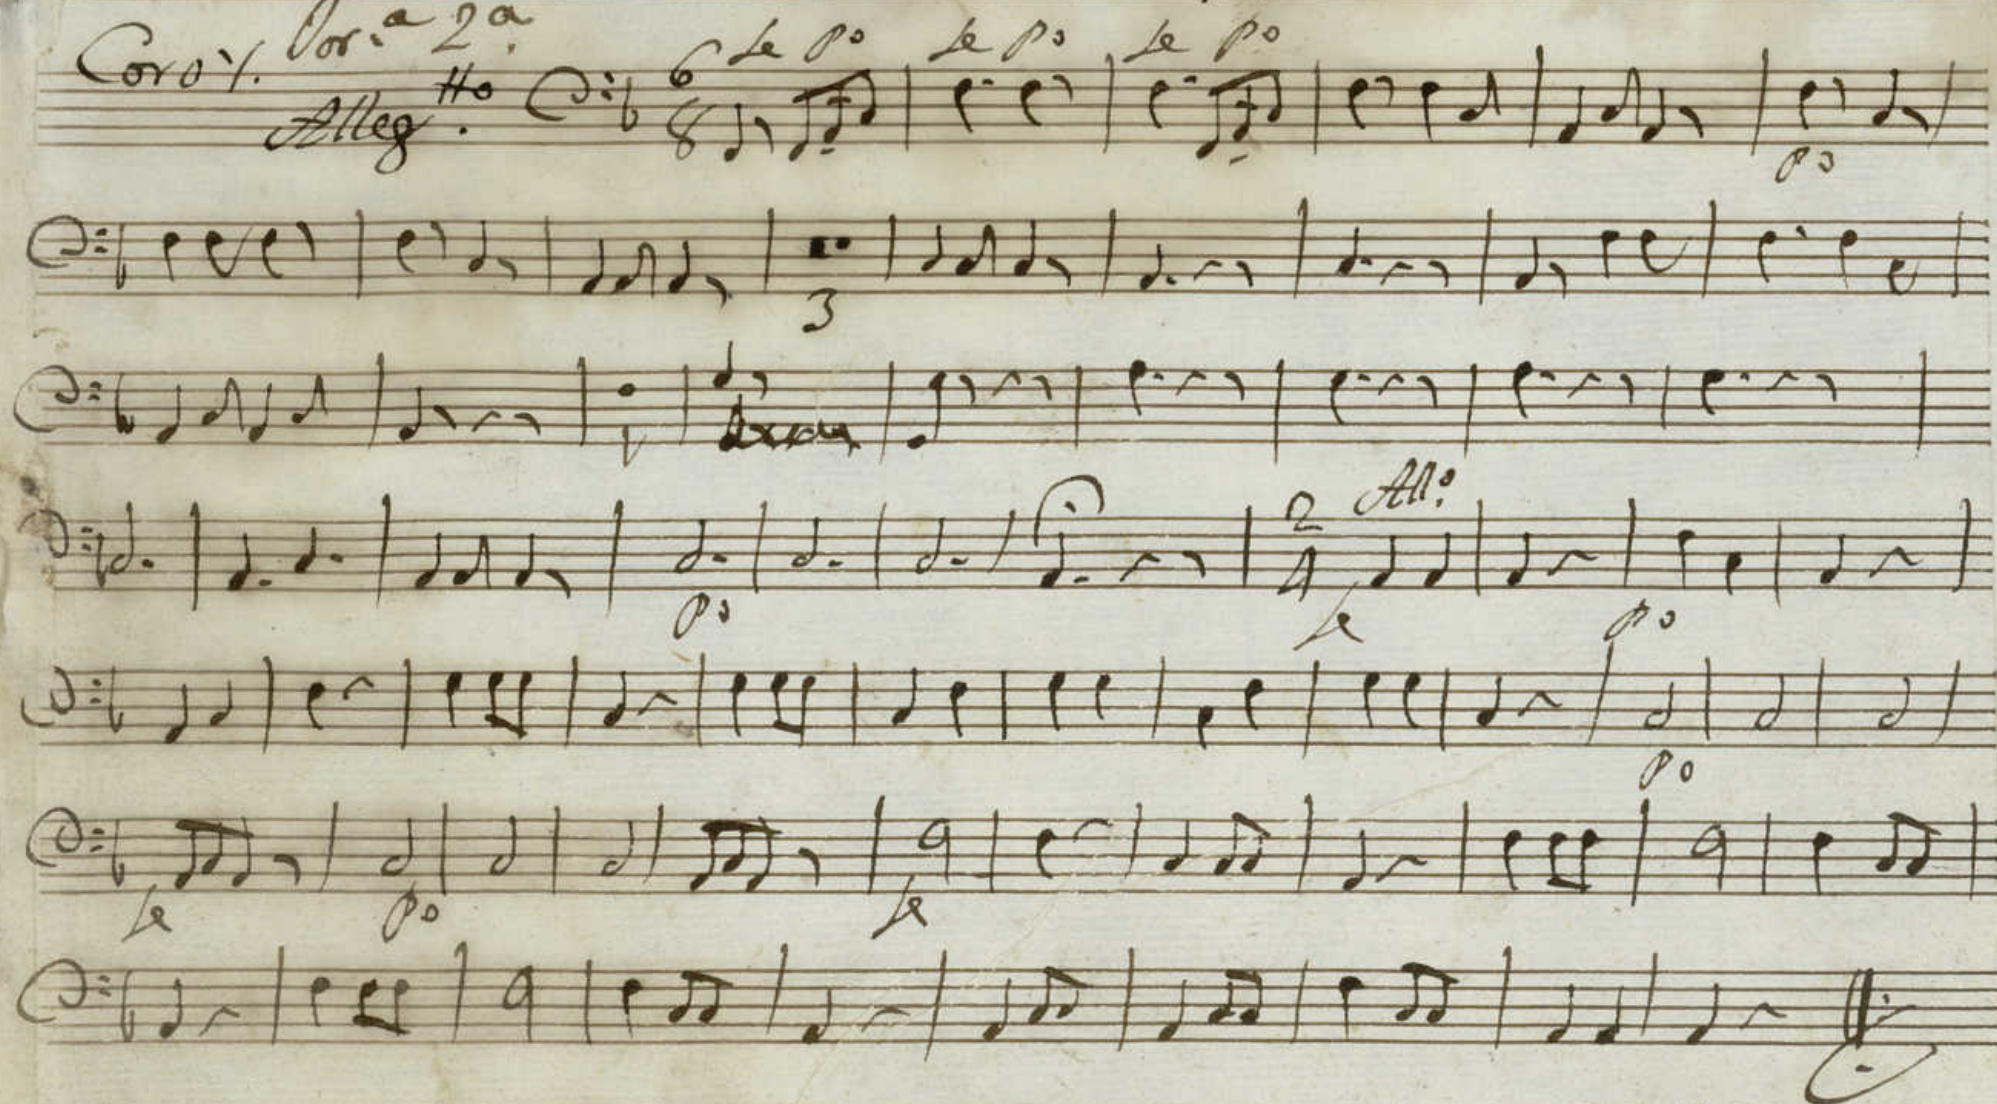 Coro ./. Jor.ª 2ª.
Alleg.tto 6 8 fe po fe po fe po
po
3
All.o
2 4
po fe po
po
fe po fe